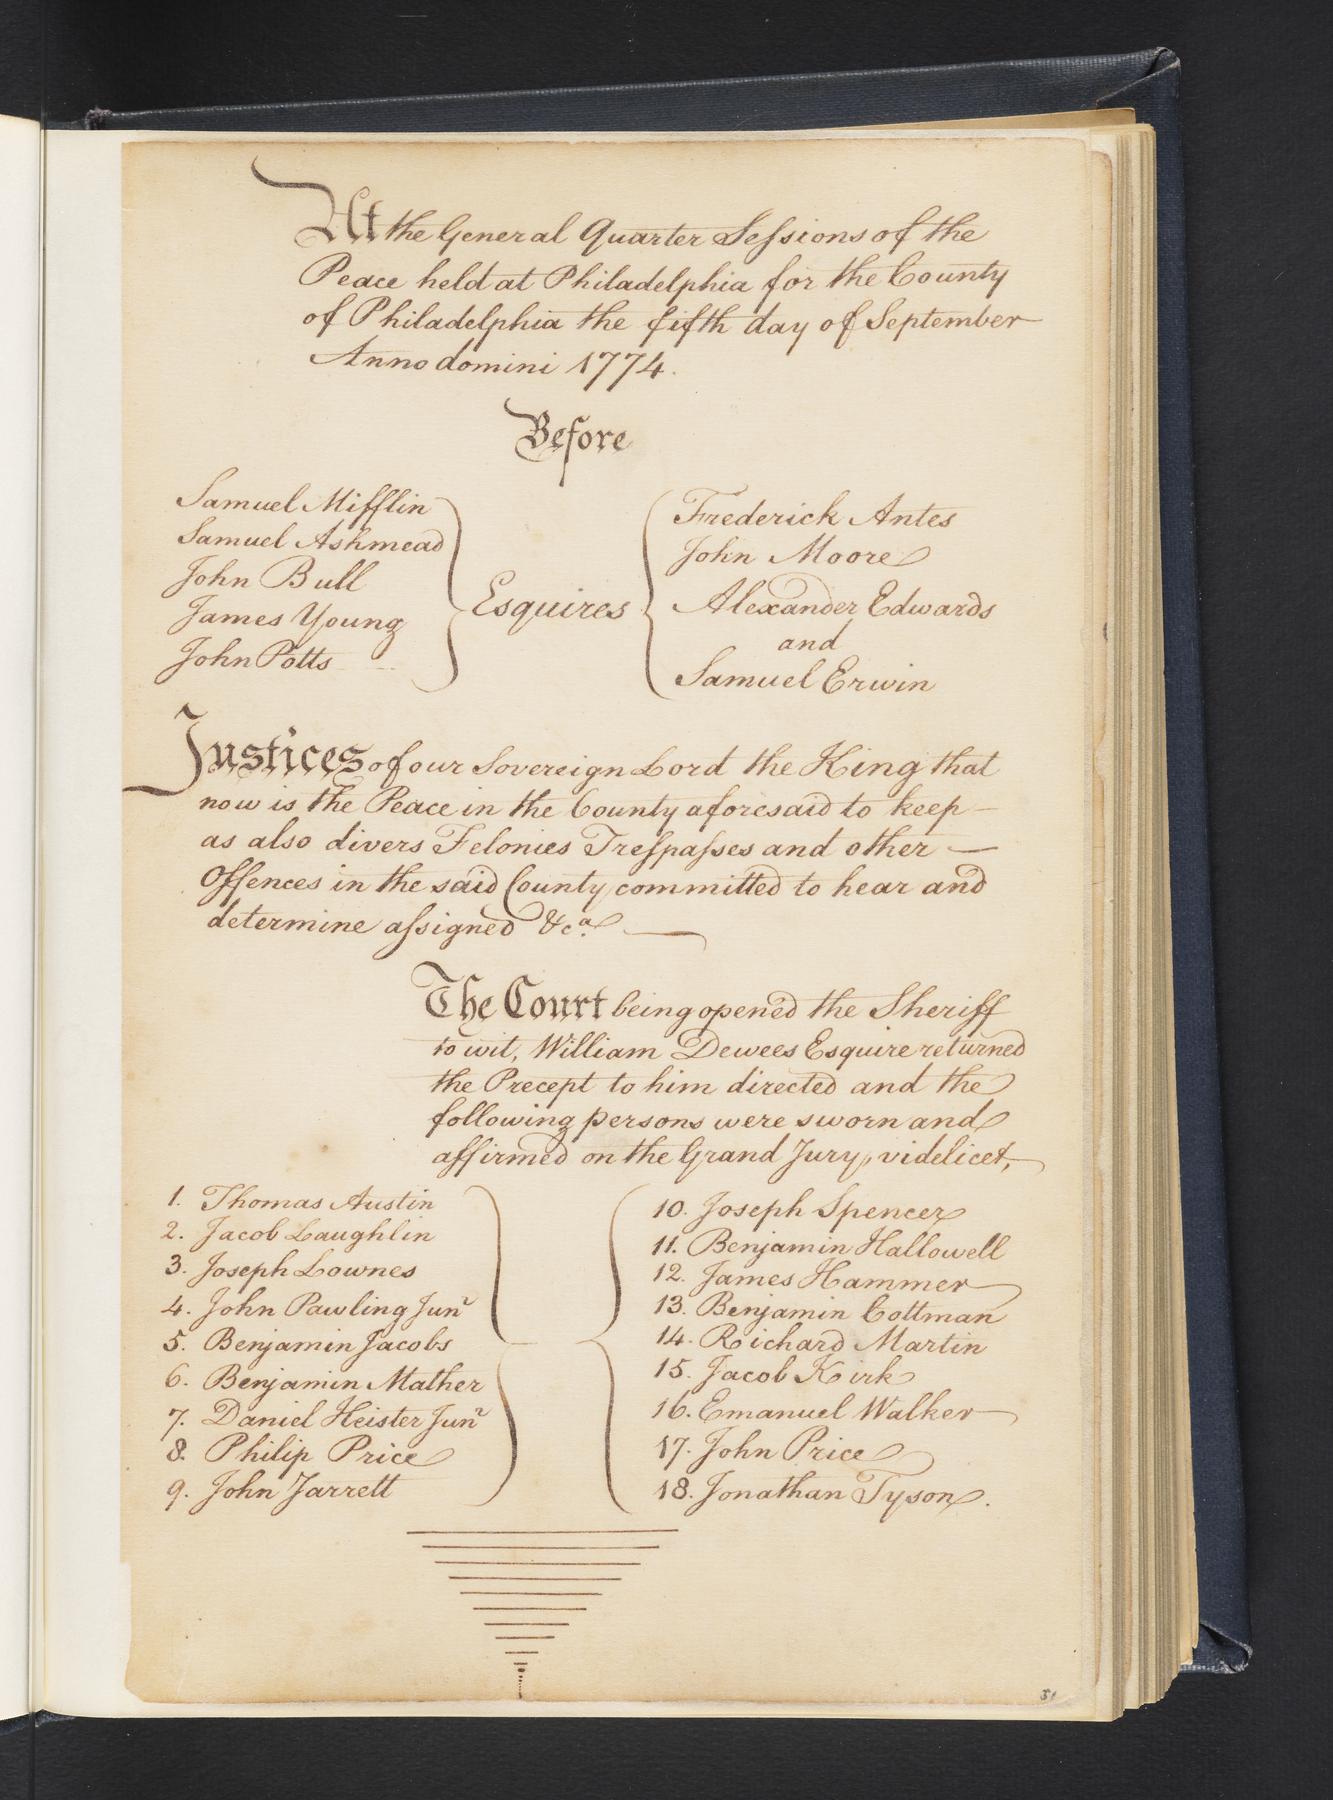 At the General Quarter Seſsions of the
Peace held at Philadelphia for the County
of Philadelphia the fifth day of September
Anno domini 1774.
Before
Samuel Mifflin
Samuel Ashmead
John Bull
James Young
John Potts
Esquires
Frederick Antes
John Moore
Alexander Edwards
and
Samuel Erwin
Justices of our Sovereign Lord the King that
now is the Peace in the County aforesaid to keep —
as also divers Felonies Treſpaſses and other —
Offences in the said County committed to hear and
determine aſsigned &c.ª —
The Court being opened the Sheriff
to wit, William Dewees Esquire returned
the Precept to him directed and the
following persons were sworn and
affirmed on the Grand Jury, videlicet,
1. Thomas Austin
2. Jacob Laughlin
3. Joseph Lownes
4. John Pawling Junr
5. Benjamin Jacobs
6. Benjamin Mather
7. Daniel Heister Junr
8. Philip Price
9. John Jarrett
10. Joseph Spencer
11. Benjamin Hallowell
12. James Hammer
13. Benjamin Cottman
14. Richard Martin
15. Jacob Kirk
16. Emanuel Walker
17. John Price
18. Jonathan Tyson.
51